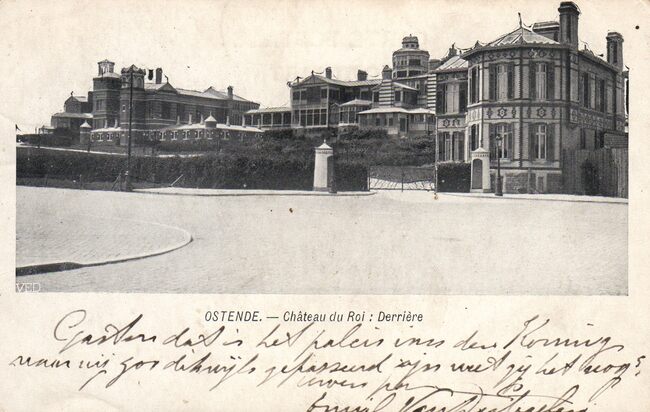 VED
OSTENDE. — Château du Roi : Derrière
Gaston dat is het paleis van den Koning
waar wij zoo dikwijls gepasseerd zijn weet gij het nog?
uwen
Emiel Van